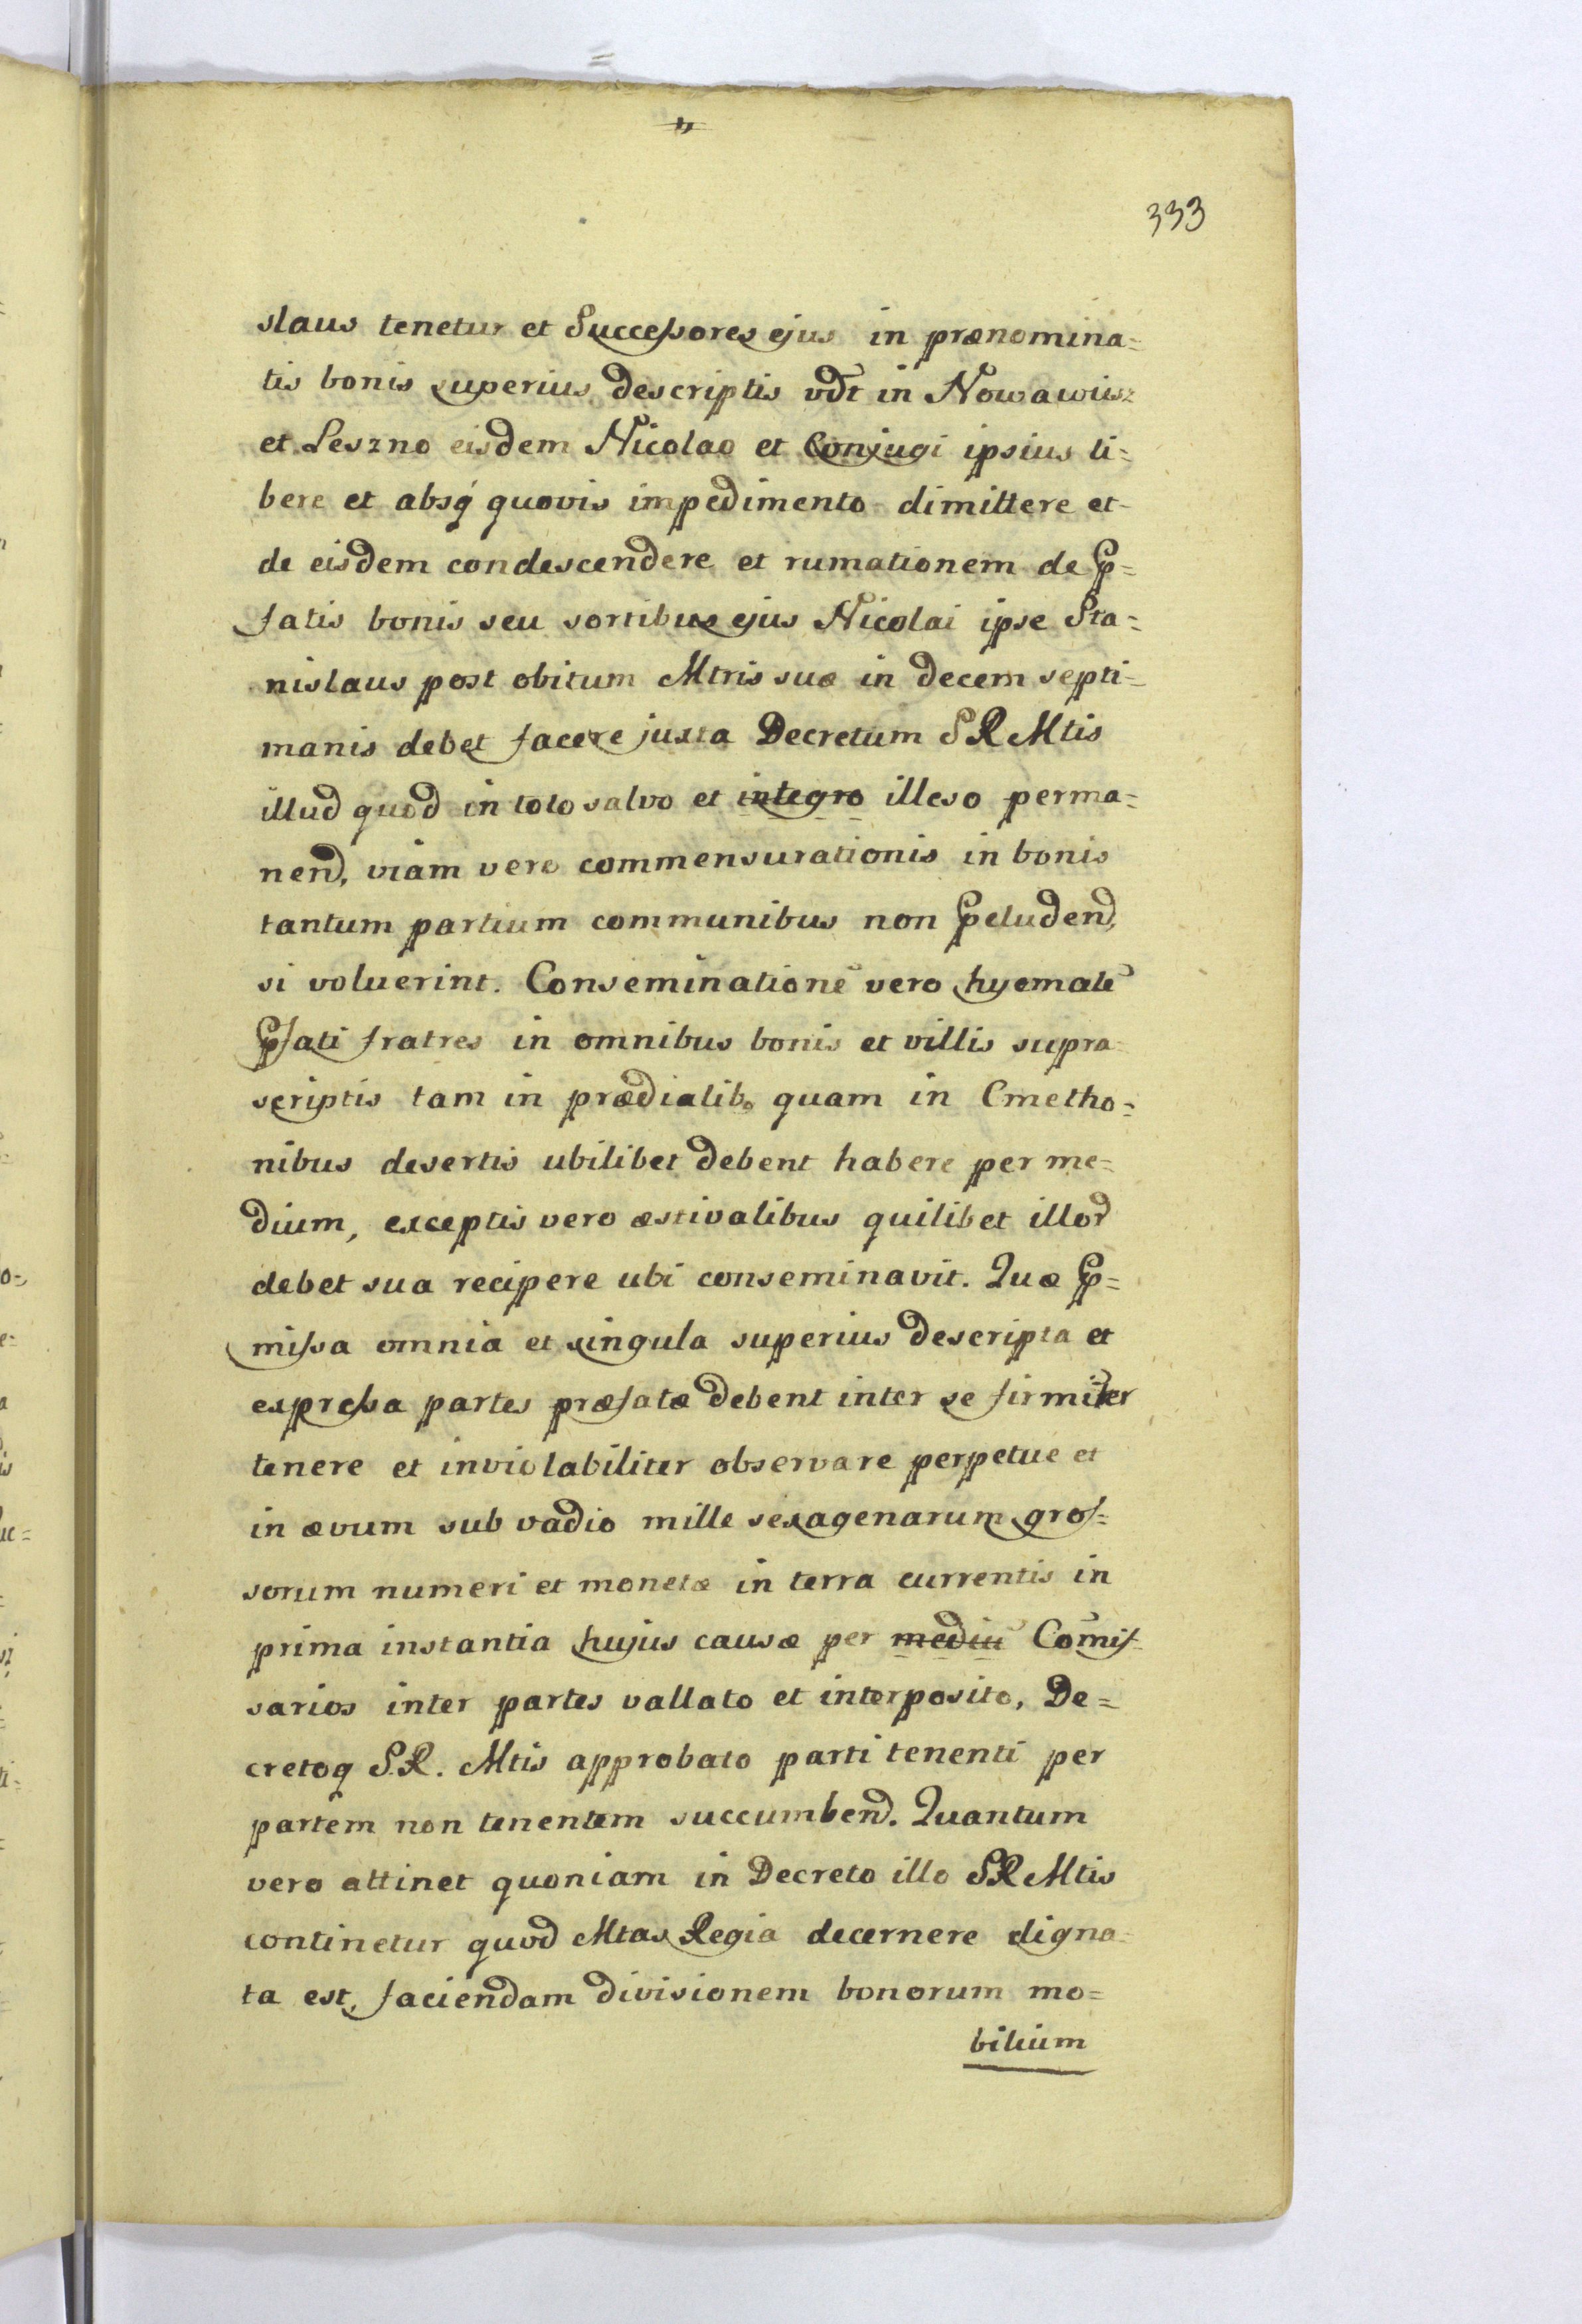 333
slaus tenetur et Successores ejus in prænomina=
tis bonis superius descriptis vdt in Nowawiisz
et Leszno eisdem Nicolao et Conjugi ipsius li=
bere et absq́ quovis impedimento dimittere et
de eisdem condescendere et rumationem de p̃=
fatis bonis seu sortibus ejus Nicolai ipse Sta=
nislaus post obitum Mtris suæ in decem septi=
manis debet facere juxta Decretum S R Mtis
illud quod in toto salvo et integro illeso perma=
nend, viam vero commensurationis in bonis
tantum partium communibus non p̃cludend,
si voluerint. Conseminationē vero hyemalē
p̃fati fratres in omnibus bonis et villis supra
scriptis tam in prædialib. quam in Cmetho=
nibus desertis ubilibet debent habere per me=
dium, exceptis vero æstivalibus quilibet illor
debet sua recipere ubi conseminavit. Quæ p̃=
missa omnia et singula superius descripta et
expressa partes præfatæ debent inter se firmiter
tenere et inviolabiliter observare perpetue et
in ævum sub vadio mille sexagenarum gros=
sorum numeri et monetæ in terra currentis in
prima instantia hujus causæ per mediū Com̄is
sarios inter partes vallato et interposito, De=
cretoq S.R. Mtis approbato parti tenenti per
partem non tenentem succumbend. Quantum
vero attinet quoniam in Decreto illo SR Mtis
continetur quod Mtas Regia decernere digna
ta est, faciendam divisionem bonorum mo=
bilium